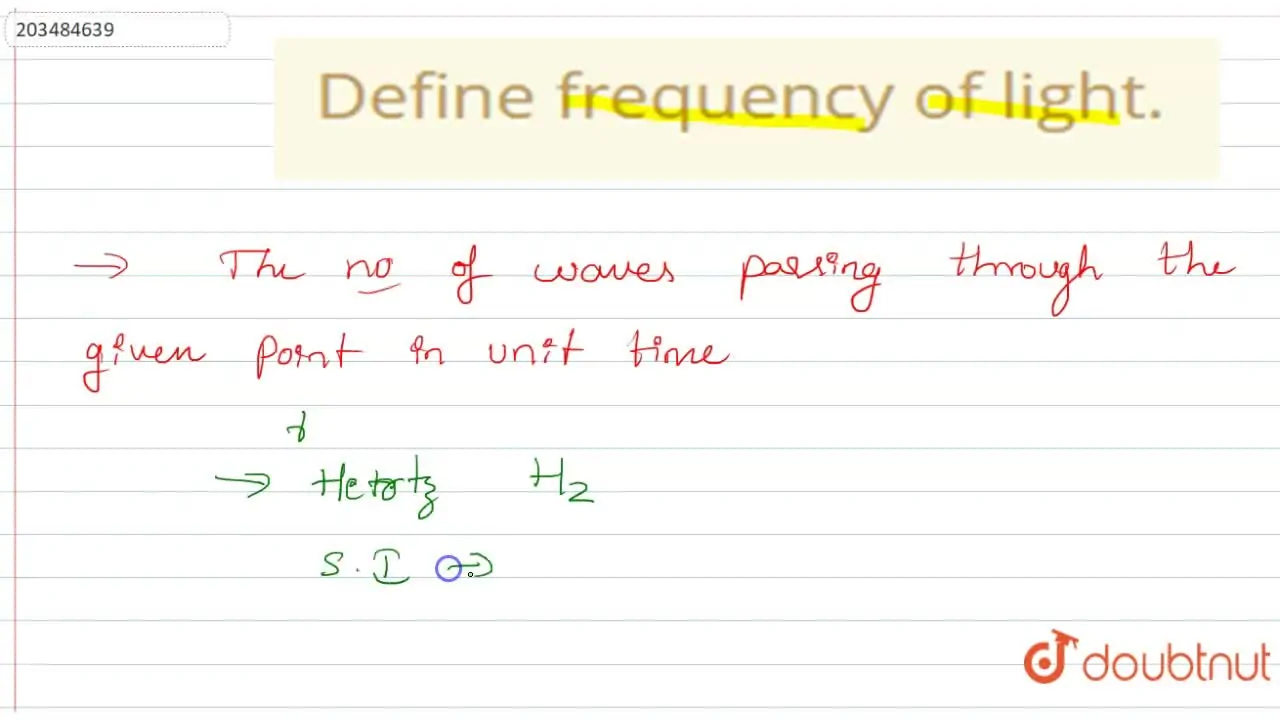 203484639
Define frequency of light.
→ The no of waves passing through the
given point in unit time
→ Hertz Hz
S.I →
doubtnut